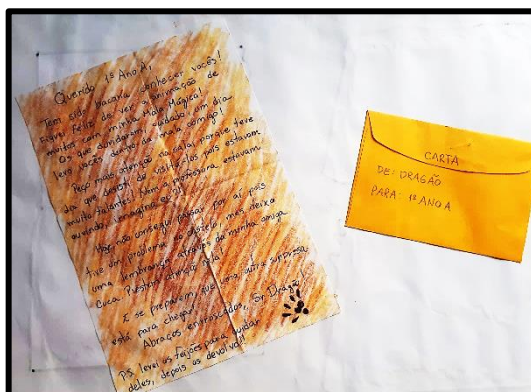 Querido 1º Ano A,
Tem sido bacana conhecer vocês!
Fiquei feliz de ver a animação de
muitos com minha Mala Mágica!
Os que não deram cuidado, um dia
levo vocês dentro da mala comigo!
Peço mais atenção na sala, porque teve
dia que desisti de visitá-los pois estavam
muito falantes! Nem a professora estavam
ouvindo, imagina eu!
Hoje não consegui passar por aí pois
tive um problema no castelo, mas deixo
uma lembrança através da minha amiga
Cuca. Prestem atenção nela!
E se preparem que uma outra surpresa
está para chegar!
Abraços enroscados, Sr. Dragão
P.S. levei os feijões para cuidar
deles, depois os devolvo!!!
CARTA
DE: DRAGÃO
PARA: 1º ANO A